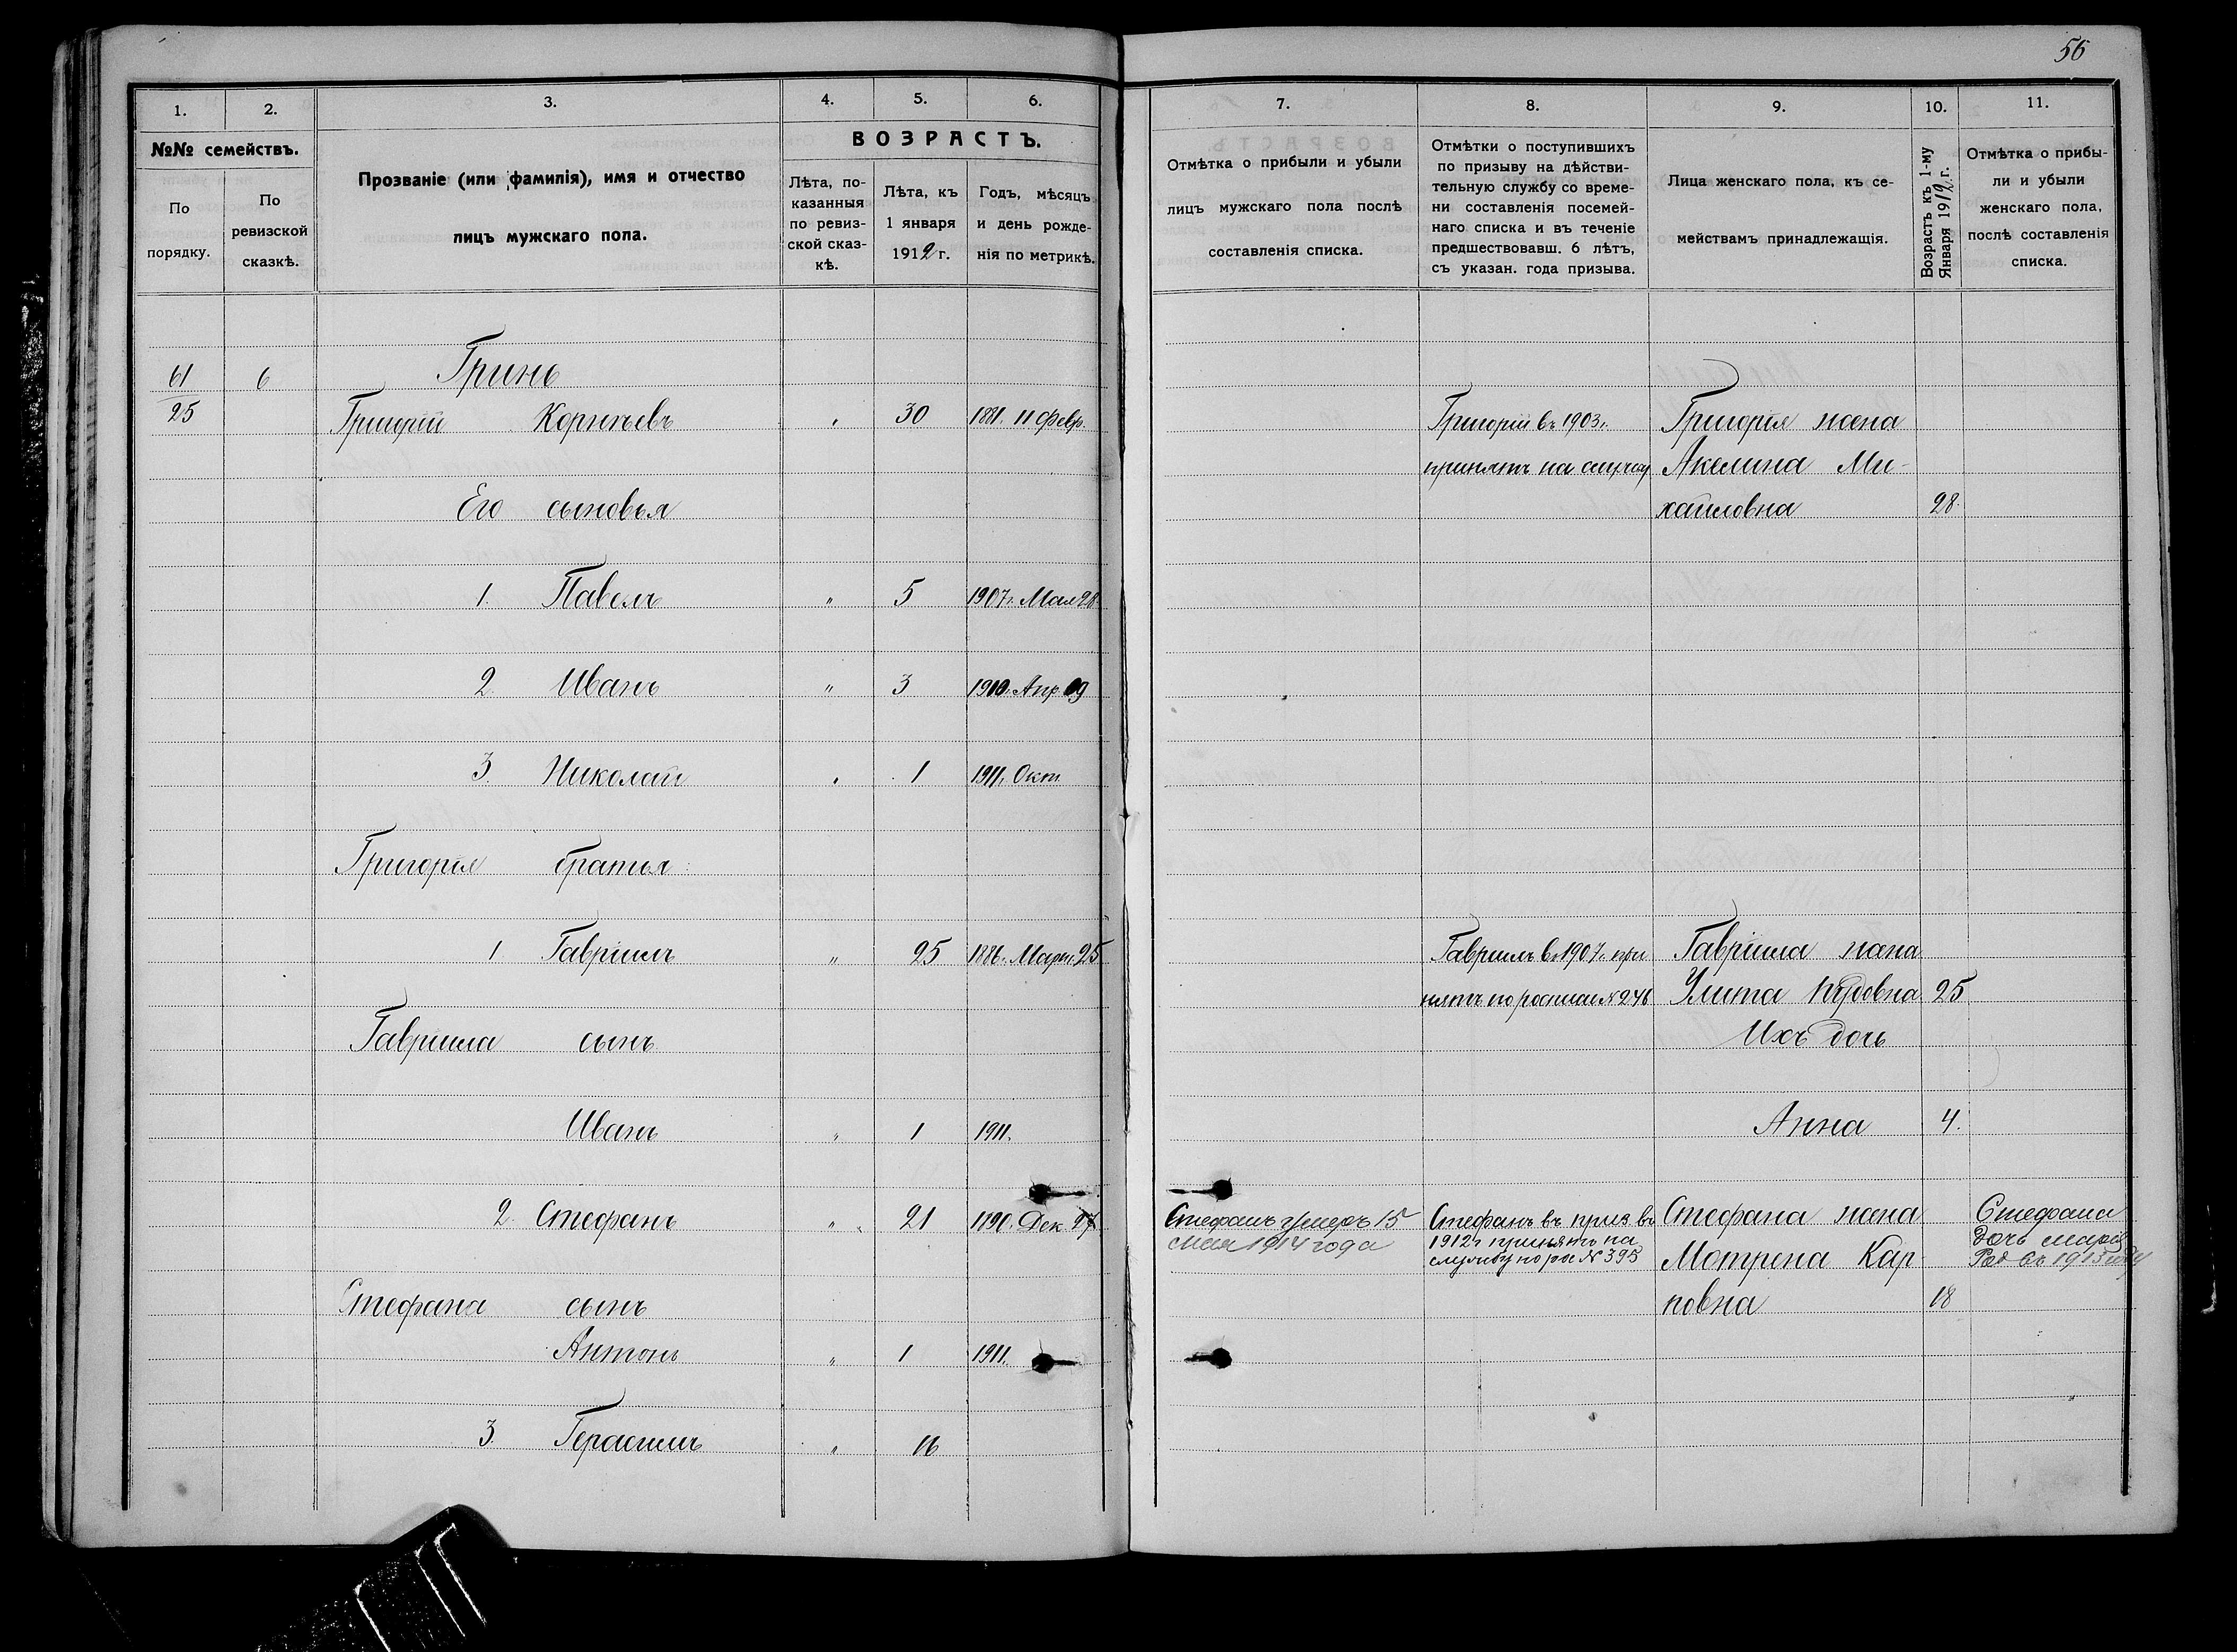 56
1. 2. 3. 4. 5. 6.
№№ семействъ.
По порядку.
По ревизской сказкѣ.
Прозваніе (или фамилія), имя и отчество
лицъ мужскаго пола.
ВОЗРАСТЪ.
Лѣта, по-
казанныя
по ревиз-
ской сказ-
кѣ.
Лѣта, къ
1 января
1912 г.
Годъ, мѣсяцъ
и день рожде-
нія по метрикѣ.
7. 8. 9. 10. 11.
Отмѣтка о прибыли и убыли
лицъ мужскаго пола послѣ
составленія списка.
Отмѣтки о поступившихъ
по призыву на дѣйстви-
тельную службу со време-
ни составленія посемей-
наго списка и въ теченіе
предшествовавш. 6 лѣтъ,
съ указан. года призыва.
Лица женскаго пола, къ се-
мействамъ принадлежащія.
Возрастъ къ 1-му
Января 1912 г.
Отмѣтка о прибы-
ли и убыли
женскаго пола,
послѣ составленія
списка.
61 6 Гринь
25 Григорій Корнѣевъ " 30 1881. 11 Февр.
Его сыновья
1. Павелъ " 5 1907г. Мая 28.
2. Иванъ " 3 1910. Апр. 09
3. Николай " 1 1911. Окт.
Григорія братья:
1 Гавріилъ " 25 1886. Март. 25
Гавріила сынъ
Иванъ " 1 1911.
2. Стефанъ " 21 1890. Дек. 27
Стефана сынъ
Антонъ " 1 1911.
3. Герасимъ " 16
Григорій въ 1903г. Григорія жена
принятъ на службу Акелина Ми-
хайловна 28.
Гавріилъ въ 1907г. при Гавріила жена
нятъ по росписи № 246 Улита 25
Ихъ дочь
Анна 4.
Стефанъ умеръ 15
Мая 1914 года
Стефанъ въ приз въ
1912г принятъ на
службу по рос № 395
Стефана жена
Мотрена Кар-
повна 18
Стефана
дочь Марія
Род въ 1913 году